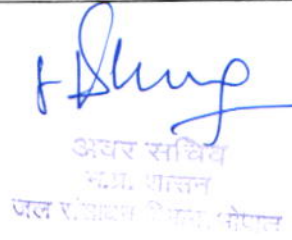 अवर सचिव
म.प्र. शासन
जल संसाधन विभाग, भोपाल